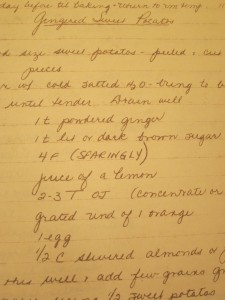 day before til baking - return to rm temp.
Gingered Sweet Potatoes
d size sweet potatoes - peeled, cu
pieces
r w/ cold salted H2O - bring to b
until tender. Drain well
1 t powdered ginger
1 t lt or dark brown sugar
4 F (SPARINGLY)
juice of a lemon
2-3 T OJ (concentrate or
grated rind of 1 orange
1 egg
1/2 C slivered almonds or
this well, & add few grains
1/2 sweet potatoes